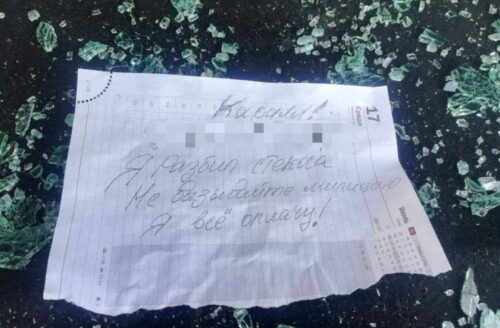 17
Среда
Кирилл!
Я разбил стекла
Не вызывайте милицию
Я всё оплачу!
Июнь